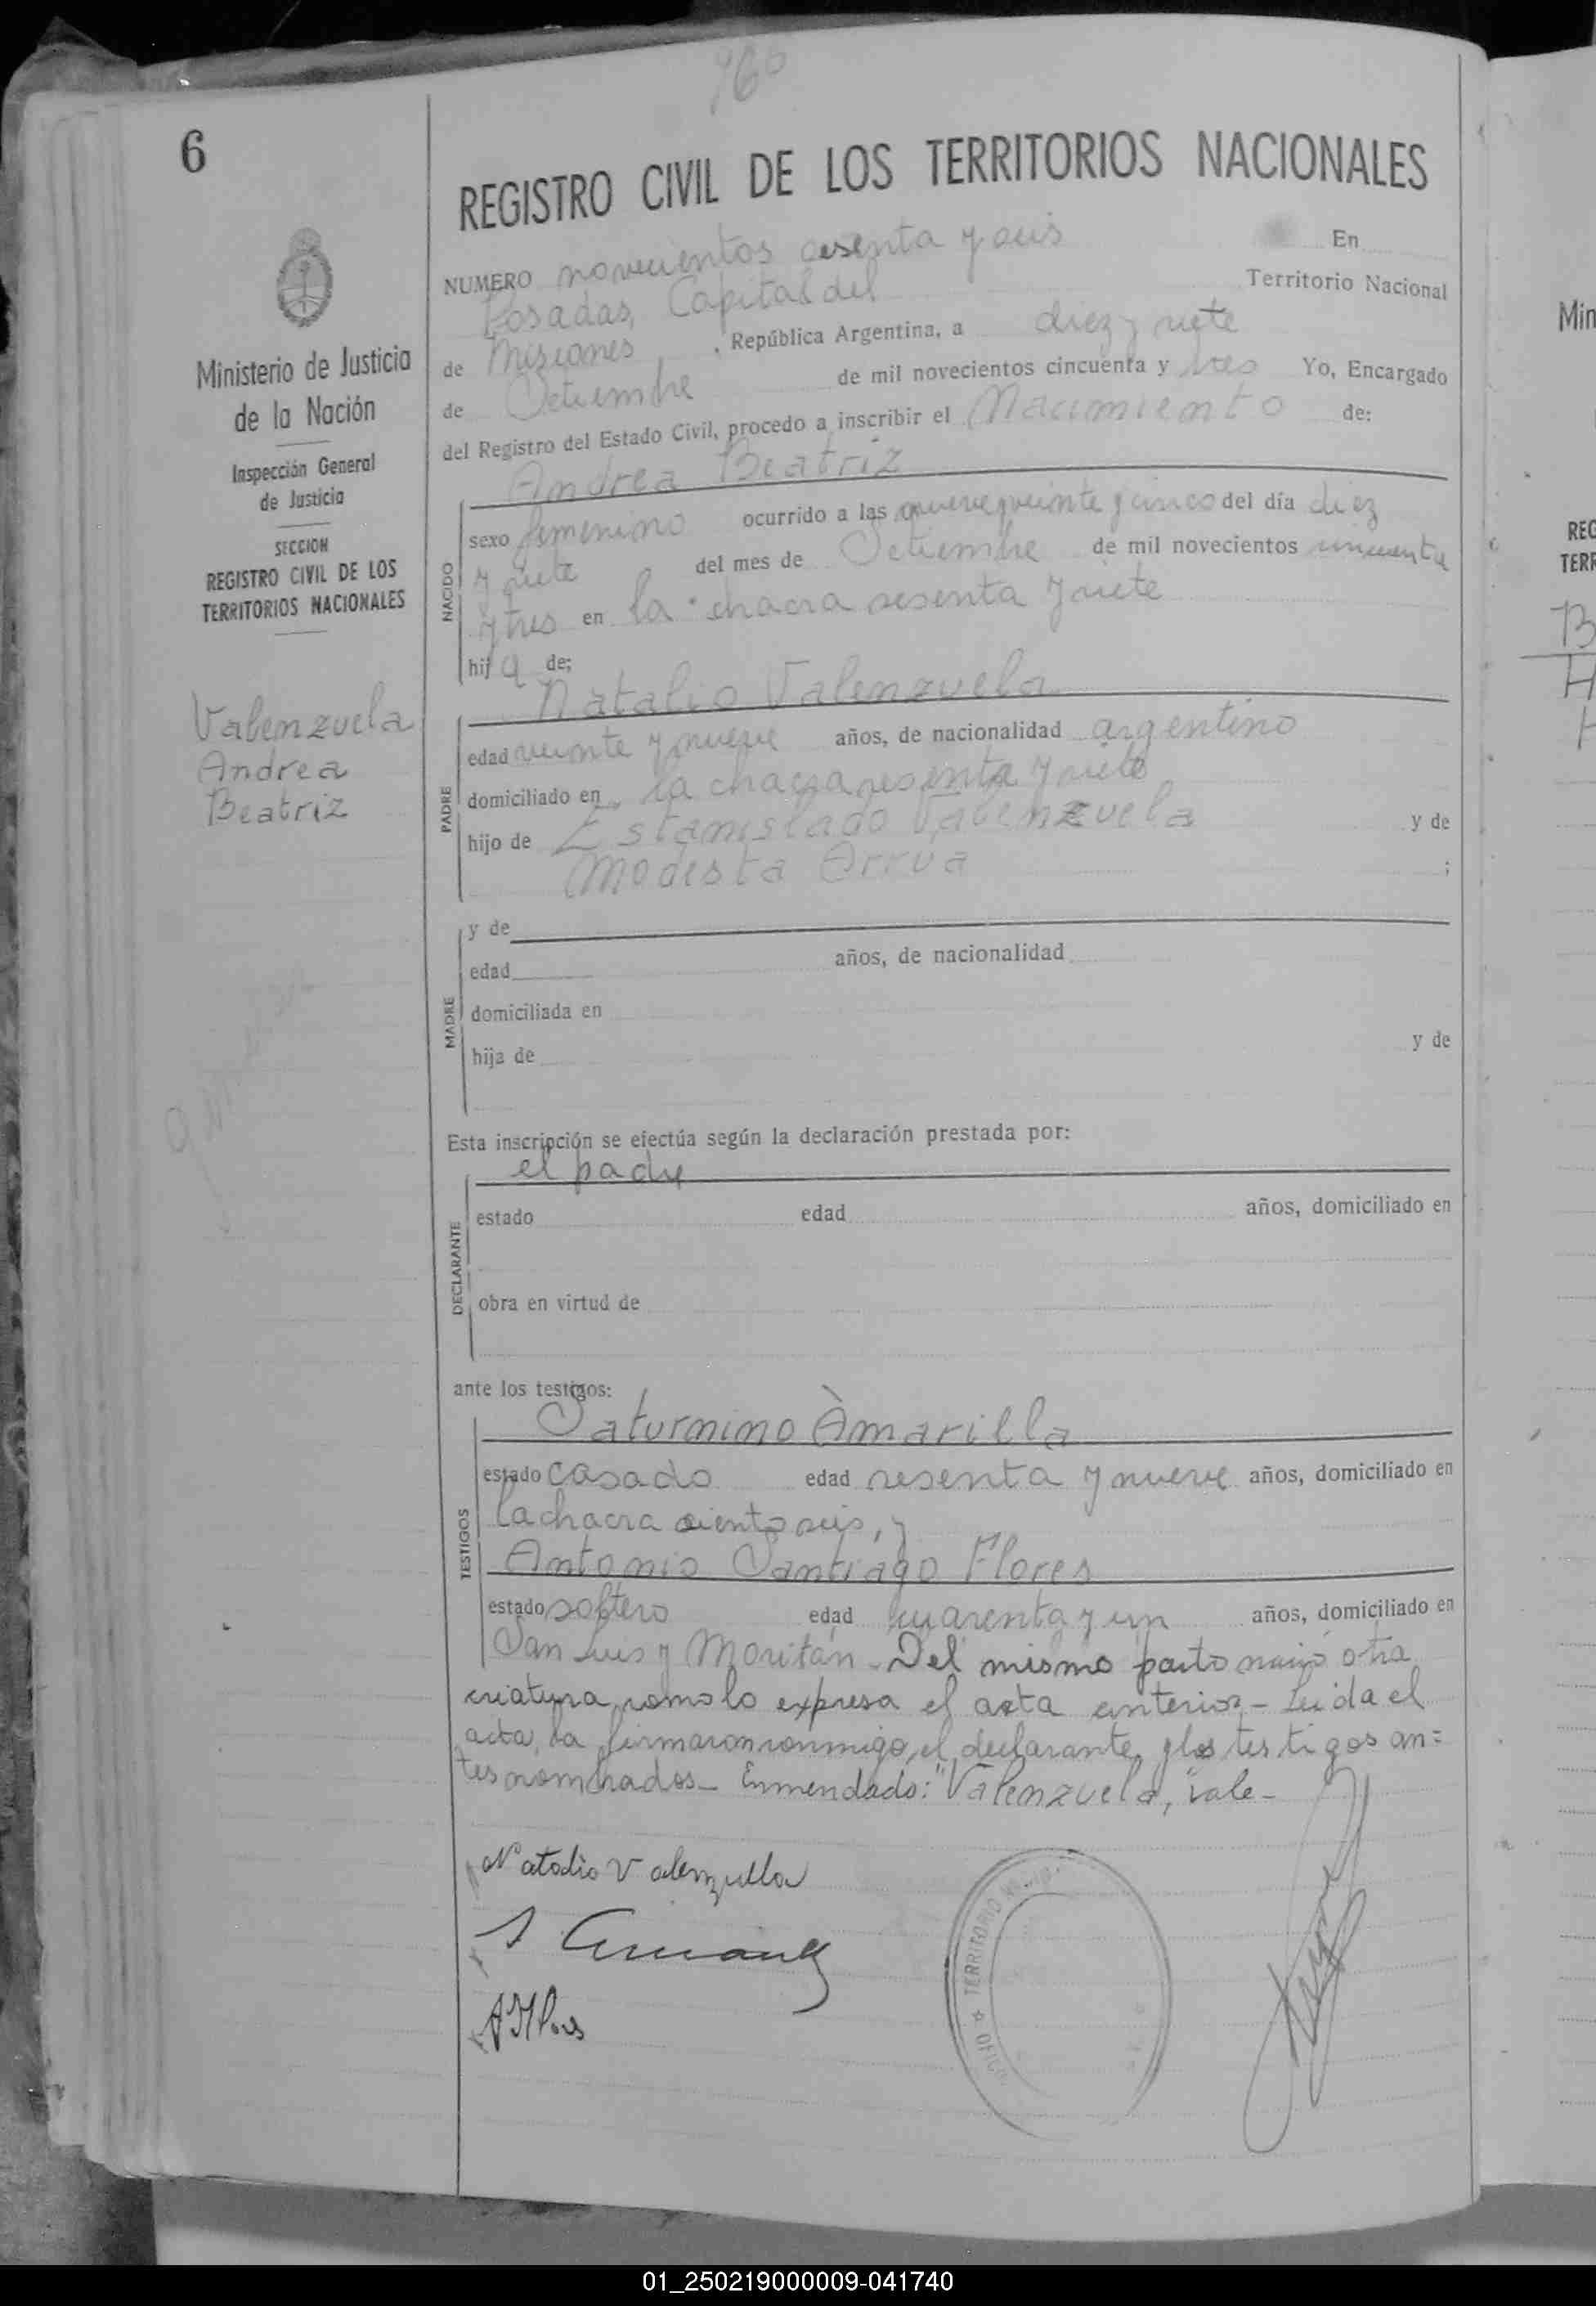 966
6
REGISTRO CIVIL DE LOS TERRITORIOS NACIONALES
NUMERO novecientos sesenta y seis En
Posadas, Capital del Territorio Nacional
de Misiones, República Argentina, a diez y siete
de Setiembre de mil novecientos cincuenta y tres Yo, Encargado
del Registro del Estado Civil, procedo a inscribir el Nacimiento de:
Ministerio de Justicia
de la Nación
Inspección General
de Justicia
SECCION
REGISTRO CIVIL DE LOS
TERRITORIOS NACIONALES
Valenzuela
Andrea
Beatriz
NACIDO
Andrea Beatriz
sexo femenino ocurrido a las nueve y veinte y cinco del día diez
y siete del mes de Setiembre de mil novecientos cincuenta
y tres en la chacra sesenta y siete
hija de;
PADRE
Natalio Valenzuela
edad veinte y nueve años, de nacionalidad argentino
domiciliado en la chacra sesenta y siete
hijo de Estanislado Valenzuela y de
Modesta Arrua ;
MADRE
y de
edad años, de nacionalidad
domiciliada en
hija de y de
Esta inscripción se efectúa según la declaración prestada por:
DECLARANTE
el padre
estado edad años, domiciliado en
obra en virtud de
ante los testigos:
TESTIGOS
Saturnino Amarilla
estado casado edad sesenta y nueve años, domiciliado en
la chacra ciento seis, y
Antonio Santiago Flores
estado soltero edad cuarenta y un años, domiciliado en
San Luis y Moritán - Del mismo parto nació otra
criatura como lo expresa el acta anterior - Leída el
acta, la firmaron conmigo, el declarante y los testigos an=
tes nombrados - Enmendado: "Valenzuela, vale -
Natalio Valenzuela
TERRITORIO
OFIC
Min
REG
TERR
B
H
01_250219000009-041740